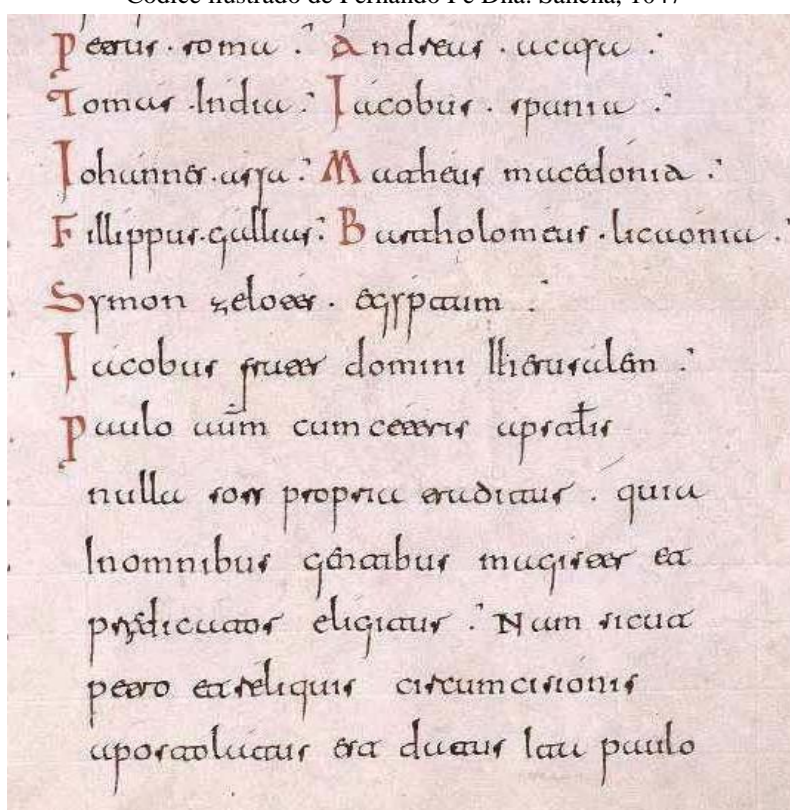 Códice ilustrado de Fernando I e Dña. Sancha, 1047
Petrus · roma : Andreas · acaya :
Tomas · India : Iacobus · spania :
Iohannes · asya : Matheus macedonia :
Fillippus · gallias : Bartholomeus · licaonia :
Symon zelotes · egyptum :
Iacobus frater domini Iherusalem :
Paulo aūm cum ceteris apsatłis
nulla sors propria traditur · quia
In omnibus gentibus magister et
predicator eligitur : Nam sicut
petro et reliquis circumcisionis
apostolatus est datus Ita paulo